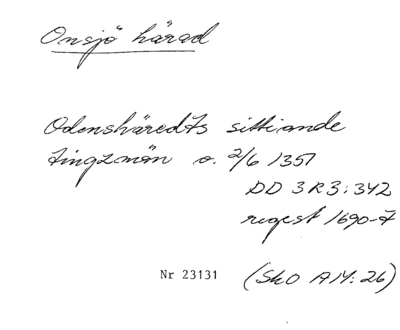 Onsjö härad
Odenshäredts sittiande
tingzmän o. 2/6 1351
DD 3 R 3:342
regest 1690-t
Nr 23131 (SkO AM:26)